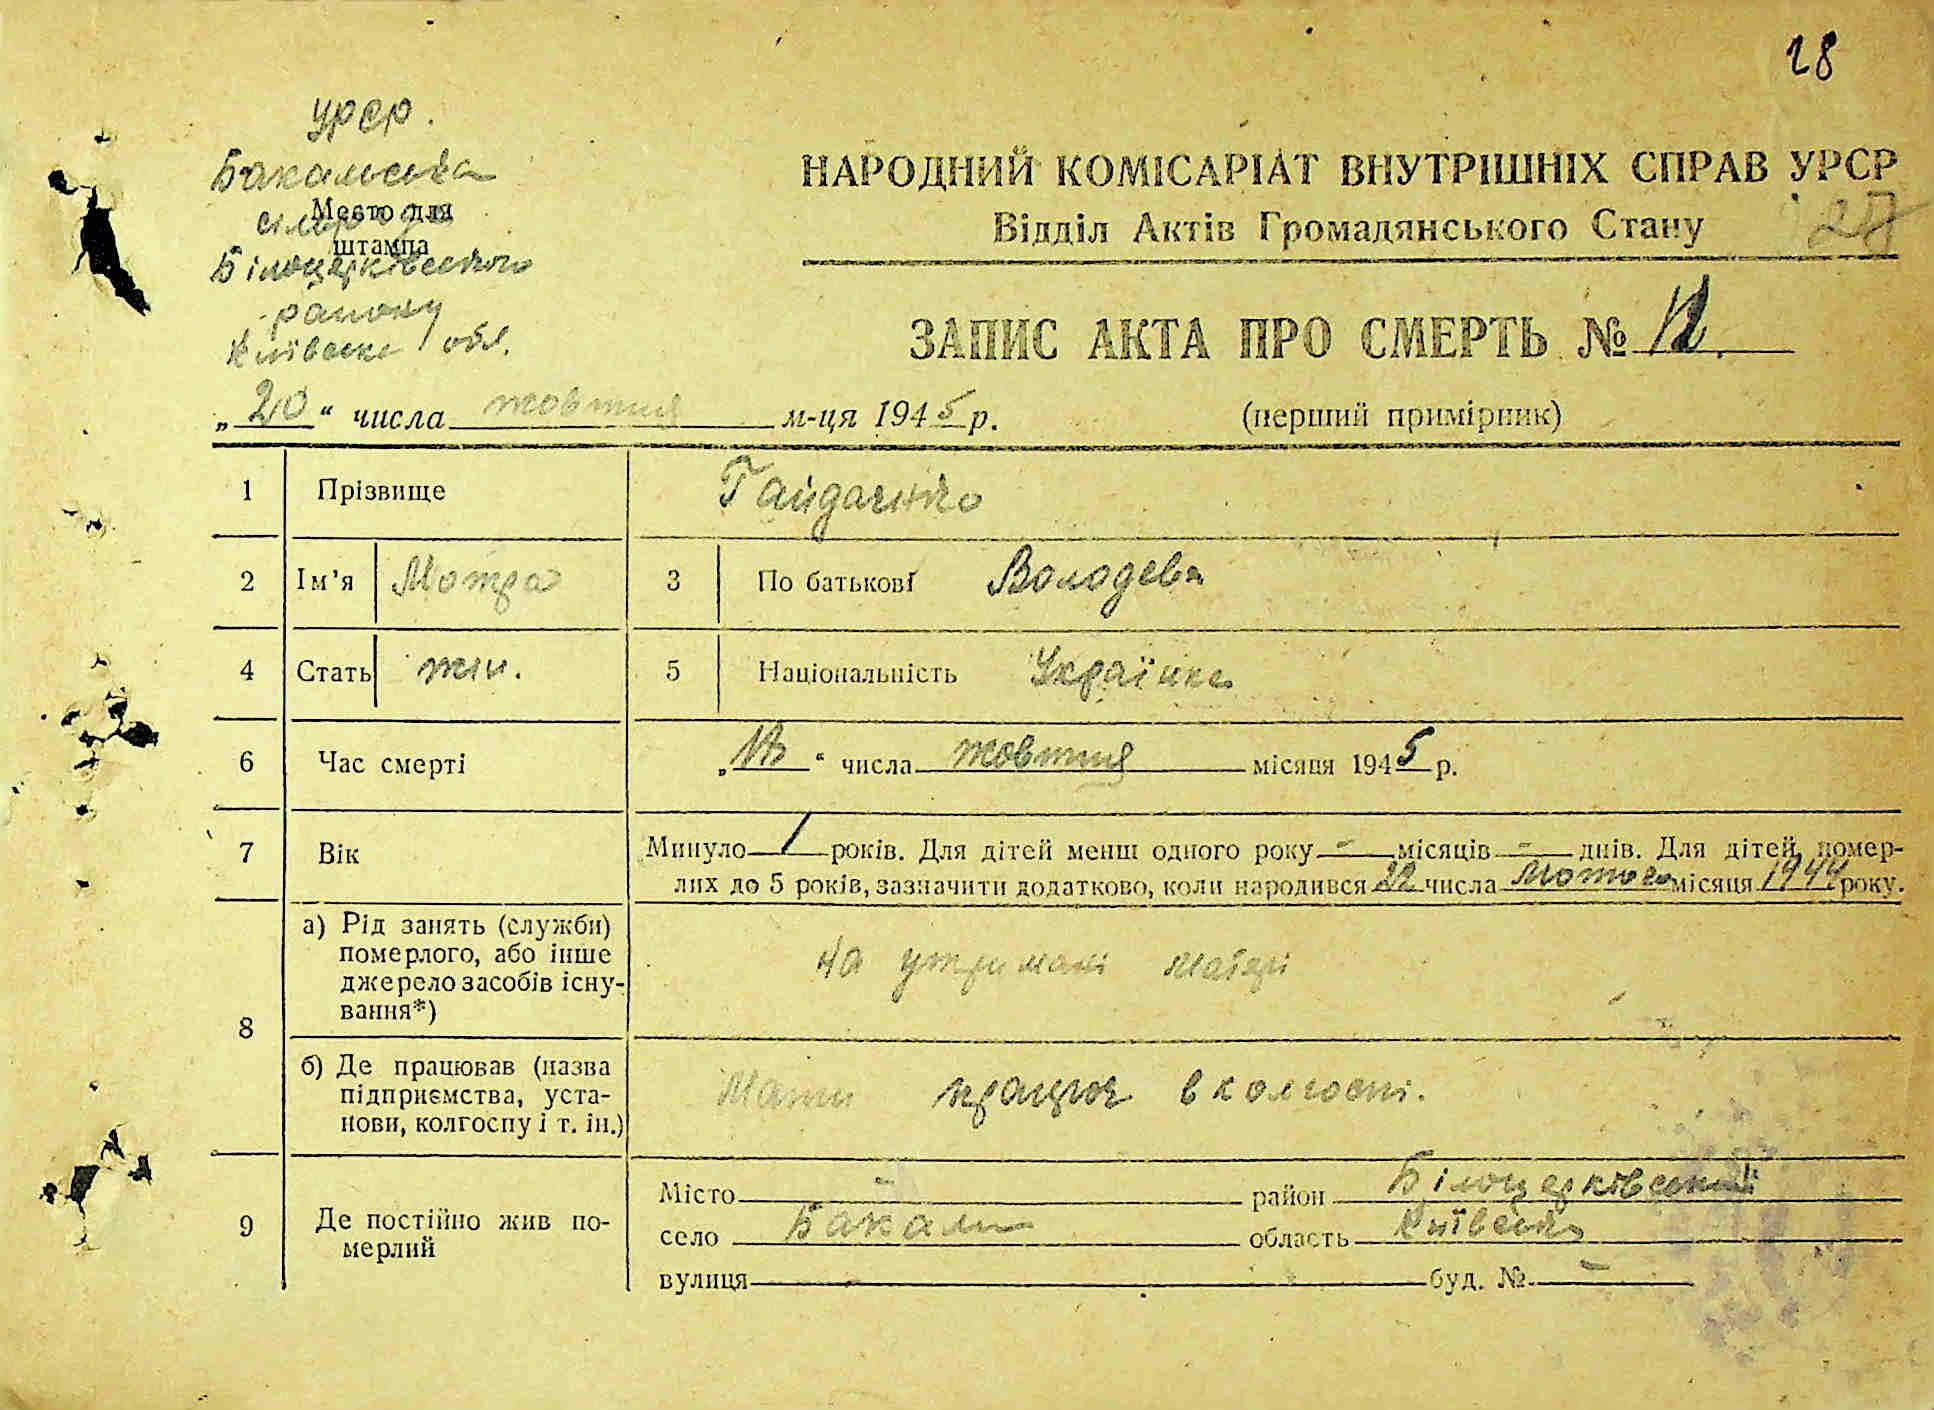 28
УРСР.
Бакальська
Место для
сільрада
штампа
Білоцерківського
району
Київська обл.
НАРОДНИЙ КОМІСАРІАТ ВНУТРІШНІХ СПРАВ УРСР
Відділ Актів Громадянського Стану
27
ЗАПИС АКТА ПРО СМЕРТЬ № 12.
„20“ числа жовтня м-ця 1945 р.
(перший примірник)
1 Прізвище Гайдаченко
2 Ім’я Мотря 3 По батькові
4 Стать жін. 5 Національність Українка
6 Час смерті числа жовтня місяця 1945 р.
7 Вік Минуло 1 років. Для дітей менш одного року - місяців - днів. Для дітей, помер-
лих до 5 років, зазначити додатково, коли народився 22 числа місяця 1944 року.
8 а) Рід занять (служби)
померлого, або інше
джерело засобів існу-
вання*)
на утримані матері
б) Де працював (назва
підприємства, уста-
нови, колгоспу і т. ін.)
Мати працює в колгоспі.
9 Де постійно жив по-
мерлий
Місто - район Білоцерківський
село Бакали область Київська
вулиця буд. № -